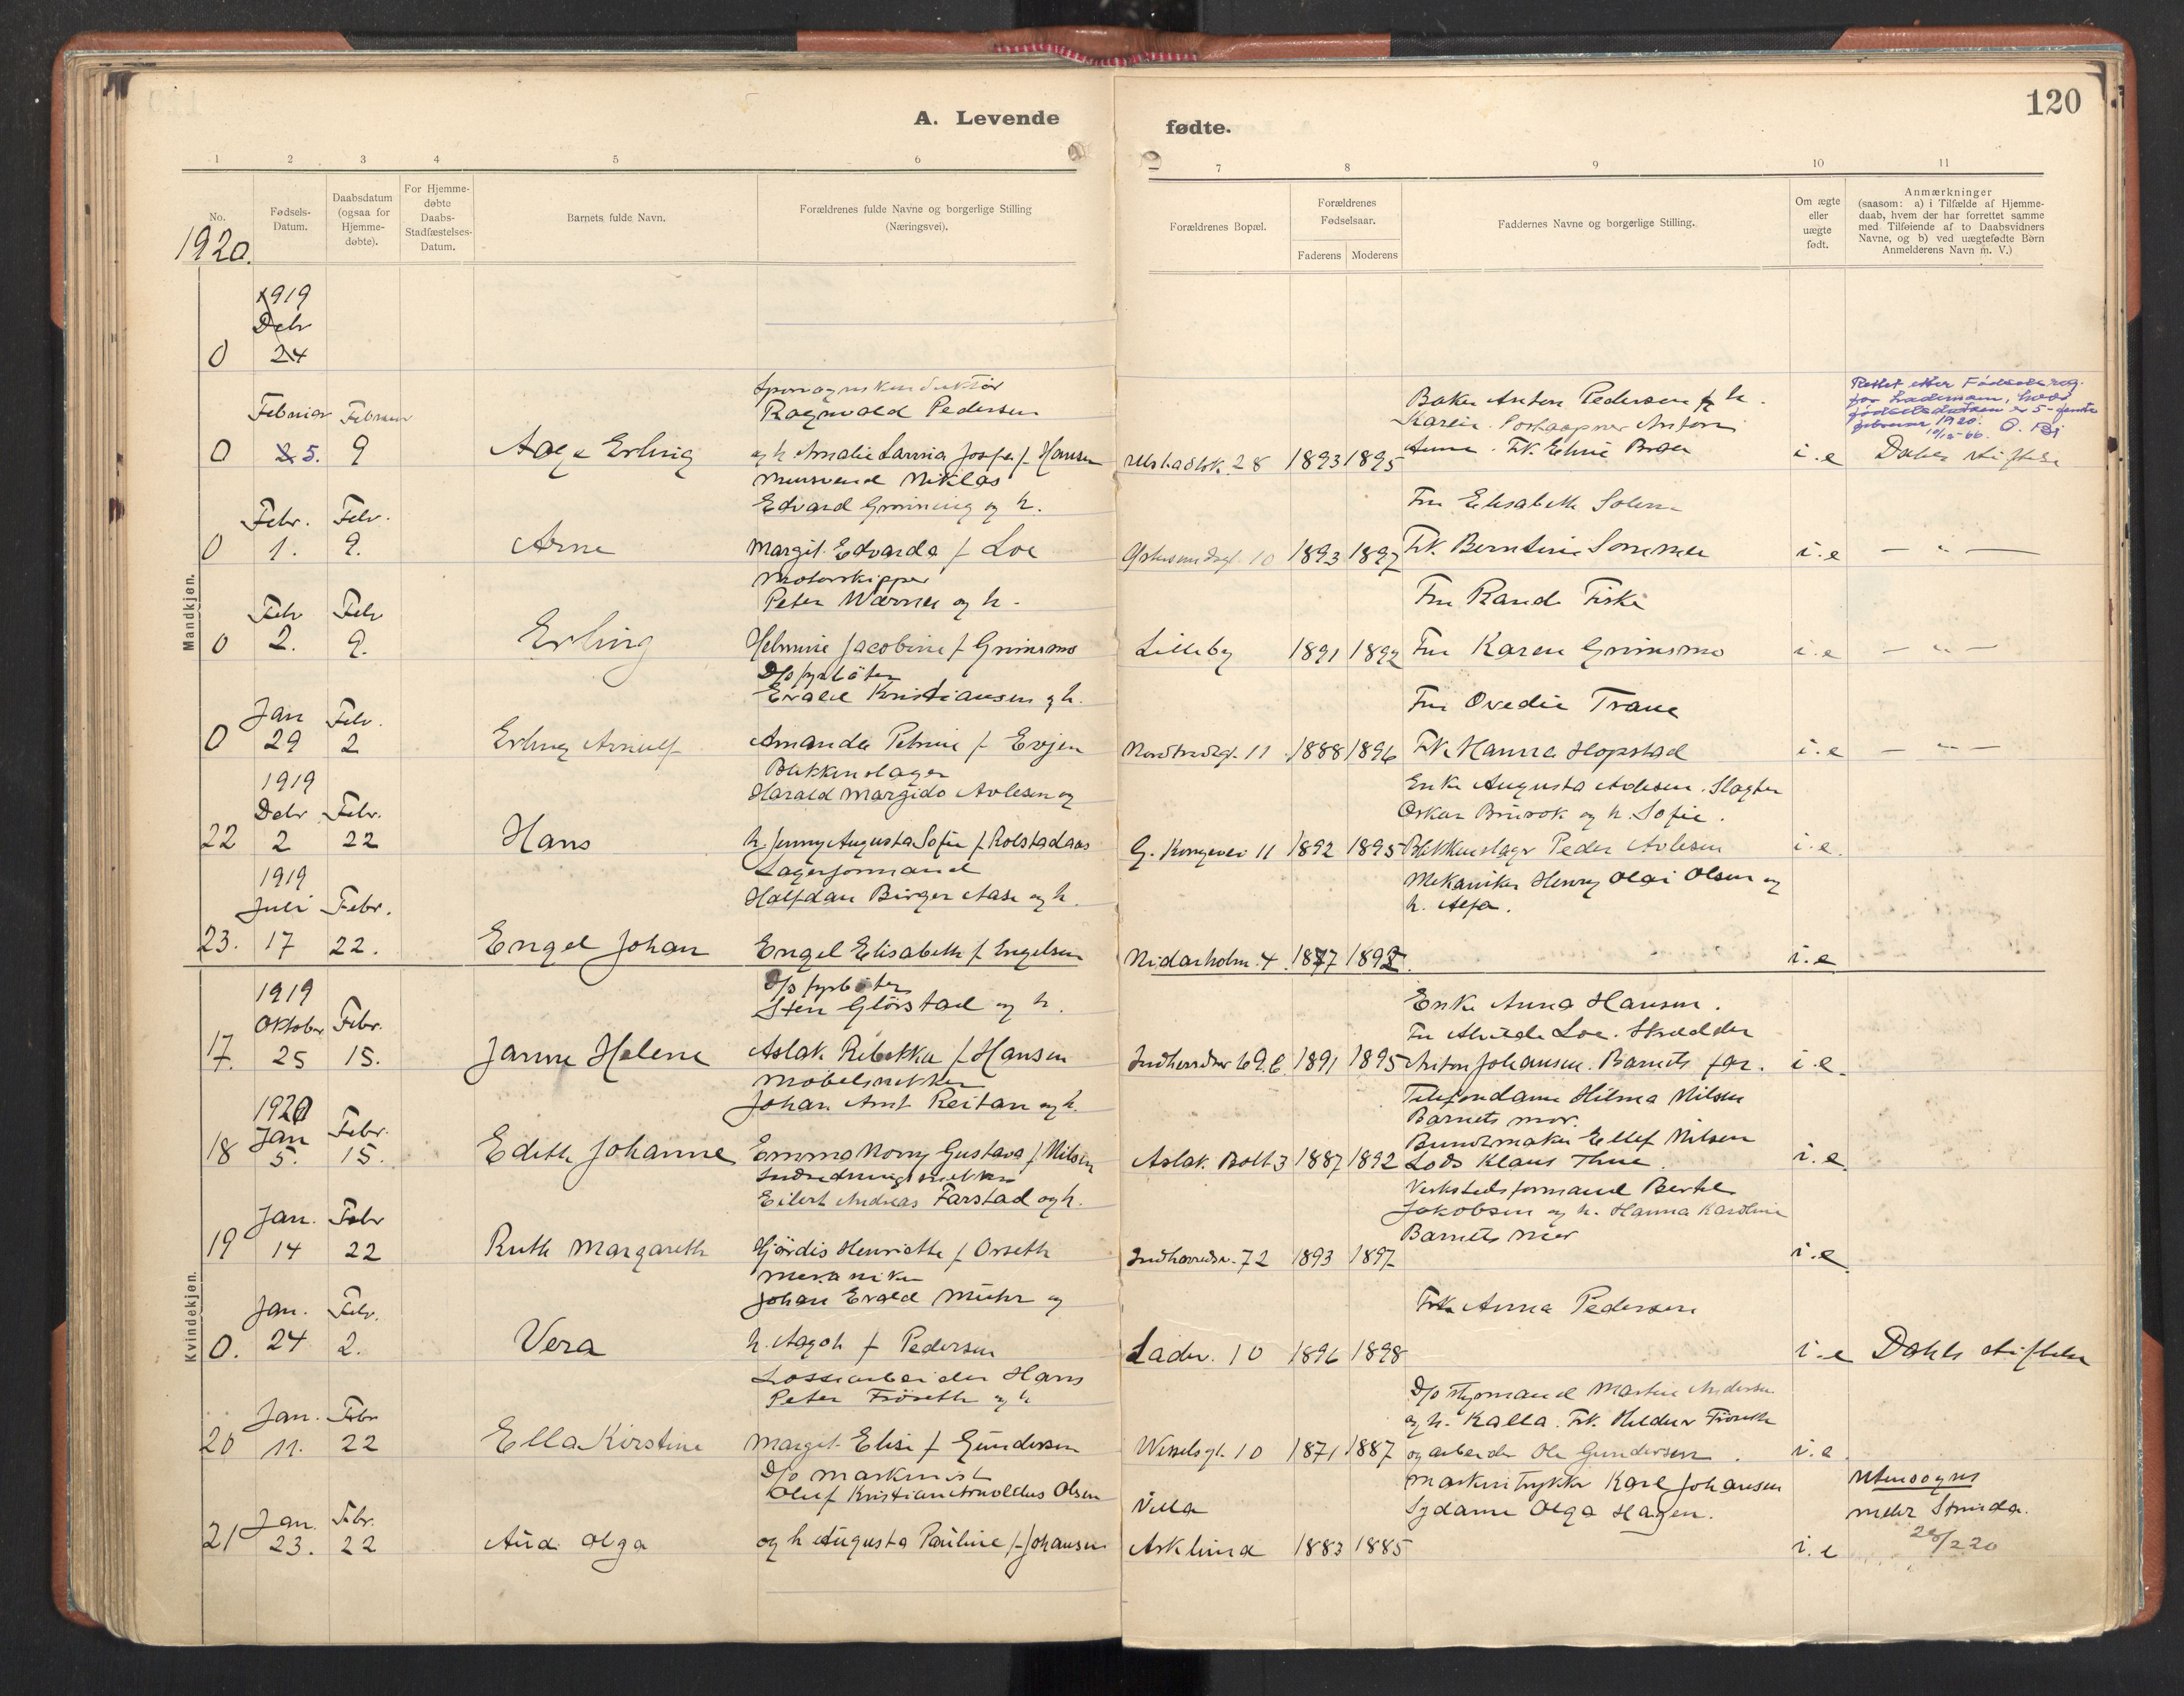 120
A. Levende
fødte.
1 2 3 4 5 6
7 8 9 10 11
No.
Fødsels-
Datum.
Daabsdatum
(ogsaa for
Hjemme-
døbte).
For Hjemme-
døbte
Daabs-
Stadfæstelses-
Datum.
Barnets fulde Navn.
Forældrenes fulde Navne og borgerlige Stilling
(Næringsvei).
Forældrenes Bopæl.
Forældrenes
Fødselsaar.
Faderens Moderens
Faddernes Navne og borgerlige Stilling.
Om ægte
eller
uægte
født.
Anmærkninger
(saasom: a) i Tilfælde af Hjemme-
daab, hvem der har forrettet samme
med Tilføiende af to Daabsvidners
Navne, og b) ved uægtefødte Børn
Anmelderens Navn m. V.)
1920.
Mandkjøn.
1919
Debr
0 24
Ragnvald Pedersen
Baker Anton Pedersen og h.
Februar Februar
0 2 5. 9
Aage Erling
og h Amalie Lauria Josefa f. Hansen
28 1893 1895
i.e Dahls stiftelse
Niklas
Edvard Grønning og h.
Fru Elisabeth Solem
Febr. Febr.
0 1. 9.
Arne
Margit Edvarda f Loe
10 1893 1897
Frk. Berntine
i.e — " —
Motorskipper
Peter Warner og h.
Fru Randi Fiske
Febr Febr
0 2. 9.
Erling
Helmine Jacobine f Grimsmo
Lilleby 1891 1892
Fru Karen Grimsmo
i.e — " —
D/s fyrbøter
Evald Kristiansen og h.
Fru Ovedie Trane
Jan Febr.
0 29 2
Erling Arnulf
Amanda Petrine f Evjen
11 1888 1896
Frk. Hanna Hopstad
i.e — " —
Blikkenslager
Harald Margido Avlesen og
Enke Augusta Avlesen. Slagter
Oskar og h. Sofie.
1919
Debr Febr.
22 2 22
Hans
h. Jenny Augusta Sofie f Rolstadaas
G. Kongevei 11 1892 1895
Blikkenslager Peder Avlesen
i.e.
Lagerformand
Halfdan Birger Aase og h.
Mekaniker Henry Olai Olsen og
h. Alfa.
1919
Juli Febr.
23. 17 22.
Engel Johan
Engel Elisabeth f Engelsen
Nidarholm 4 1877 1892.
i.e
Kvindekjøn.
D/s fyrbøter
Sten Glørstad og h.
Enke Anna Hansen.
1919
Oktober Febr.
Fru Alvilde Loe. Skrædder
17. 25 15.
Janne Helene
Aslak Rebekka f Hansen
69.b 1891 1895
Anton Johansen. Barnets far.
i.e.
Møbelsnekker
Johan Arnt Reitan og h.
Telefondame Hilma Nilsen
Barnets mor.
1920
Jan Febr.
18 5. 15.
Edith Johanne
Emma Norny Gustava f. Nilsen
Aslak. Bolt 3 1887 1892
Buntmaker Ellef Nilsen
Lods Klaus Thue.
i.e.
Eilert Andreas Farstad og h.
Verkstedsformand Bertel
Jakobsen og h. Hanna Karoline
Barnets mor
Jan. Febr
19 14 22
Ruth Margareth
Hjørdis Henriette f Orseth
72 1893 1897
i.e
Mekaniker
Johan Evald Muhr og
Frk Anna Pedersen
Jan. Febr.
0. 24 2.
Vera
h. Aagot f Pedersen
Ladev. 10 1896 1898
i.e Dahls stiftelse
Lossearbeider Hans
Peter Frøseth og h
D/s styrmand Martin Andersen
og h. Kalla. Frk. Hildur Frøseth
Jan. Febr
20 11. 22
Ella Kirstine
Margit Elise f Gundersen
Wesselsgt. 10 1871 1887
og arbeider Ole Gundersen.
i.e
D/s maskinist
Oluf Kristian Arnoldus Olsen
Villa
Maskintrykker Karl Johansen
Sydame Olga Hagen.
Utensogns
medr Strinda.
28/2 20
Jan. Febr.
21 23. 22
Aud Olga
og h Augusta Pauline f. Johansen
Asklund 1883 1885
i.e